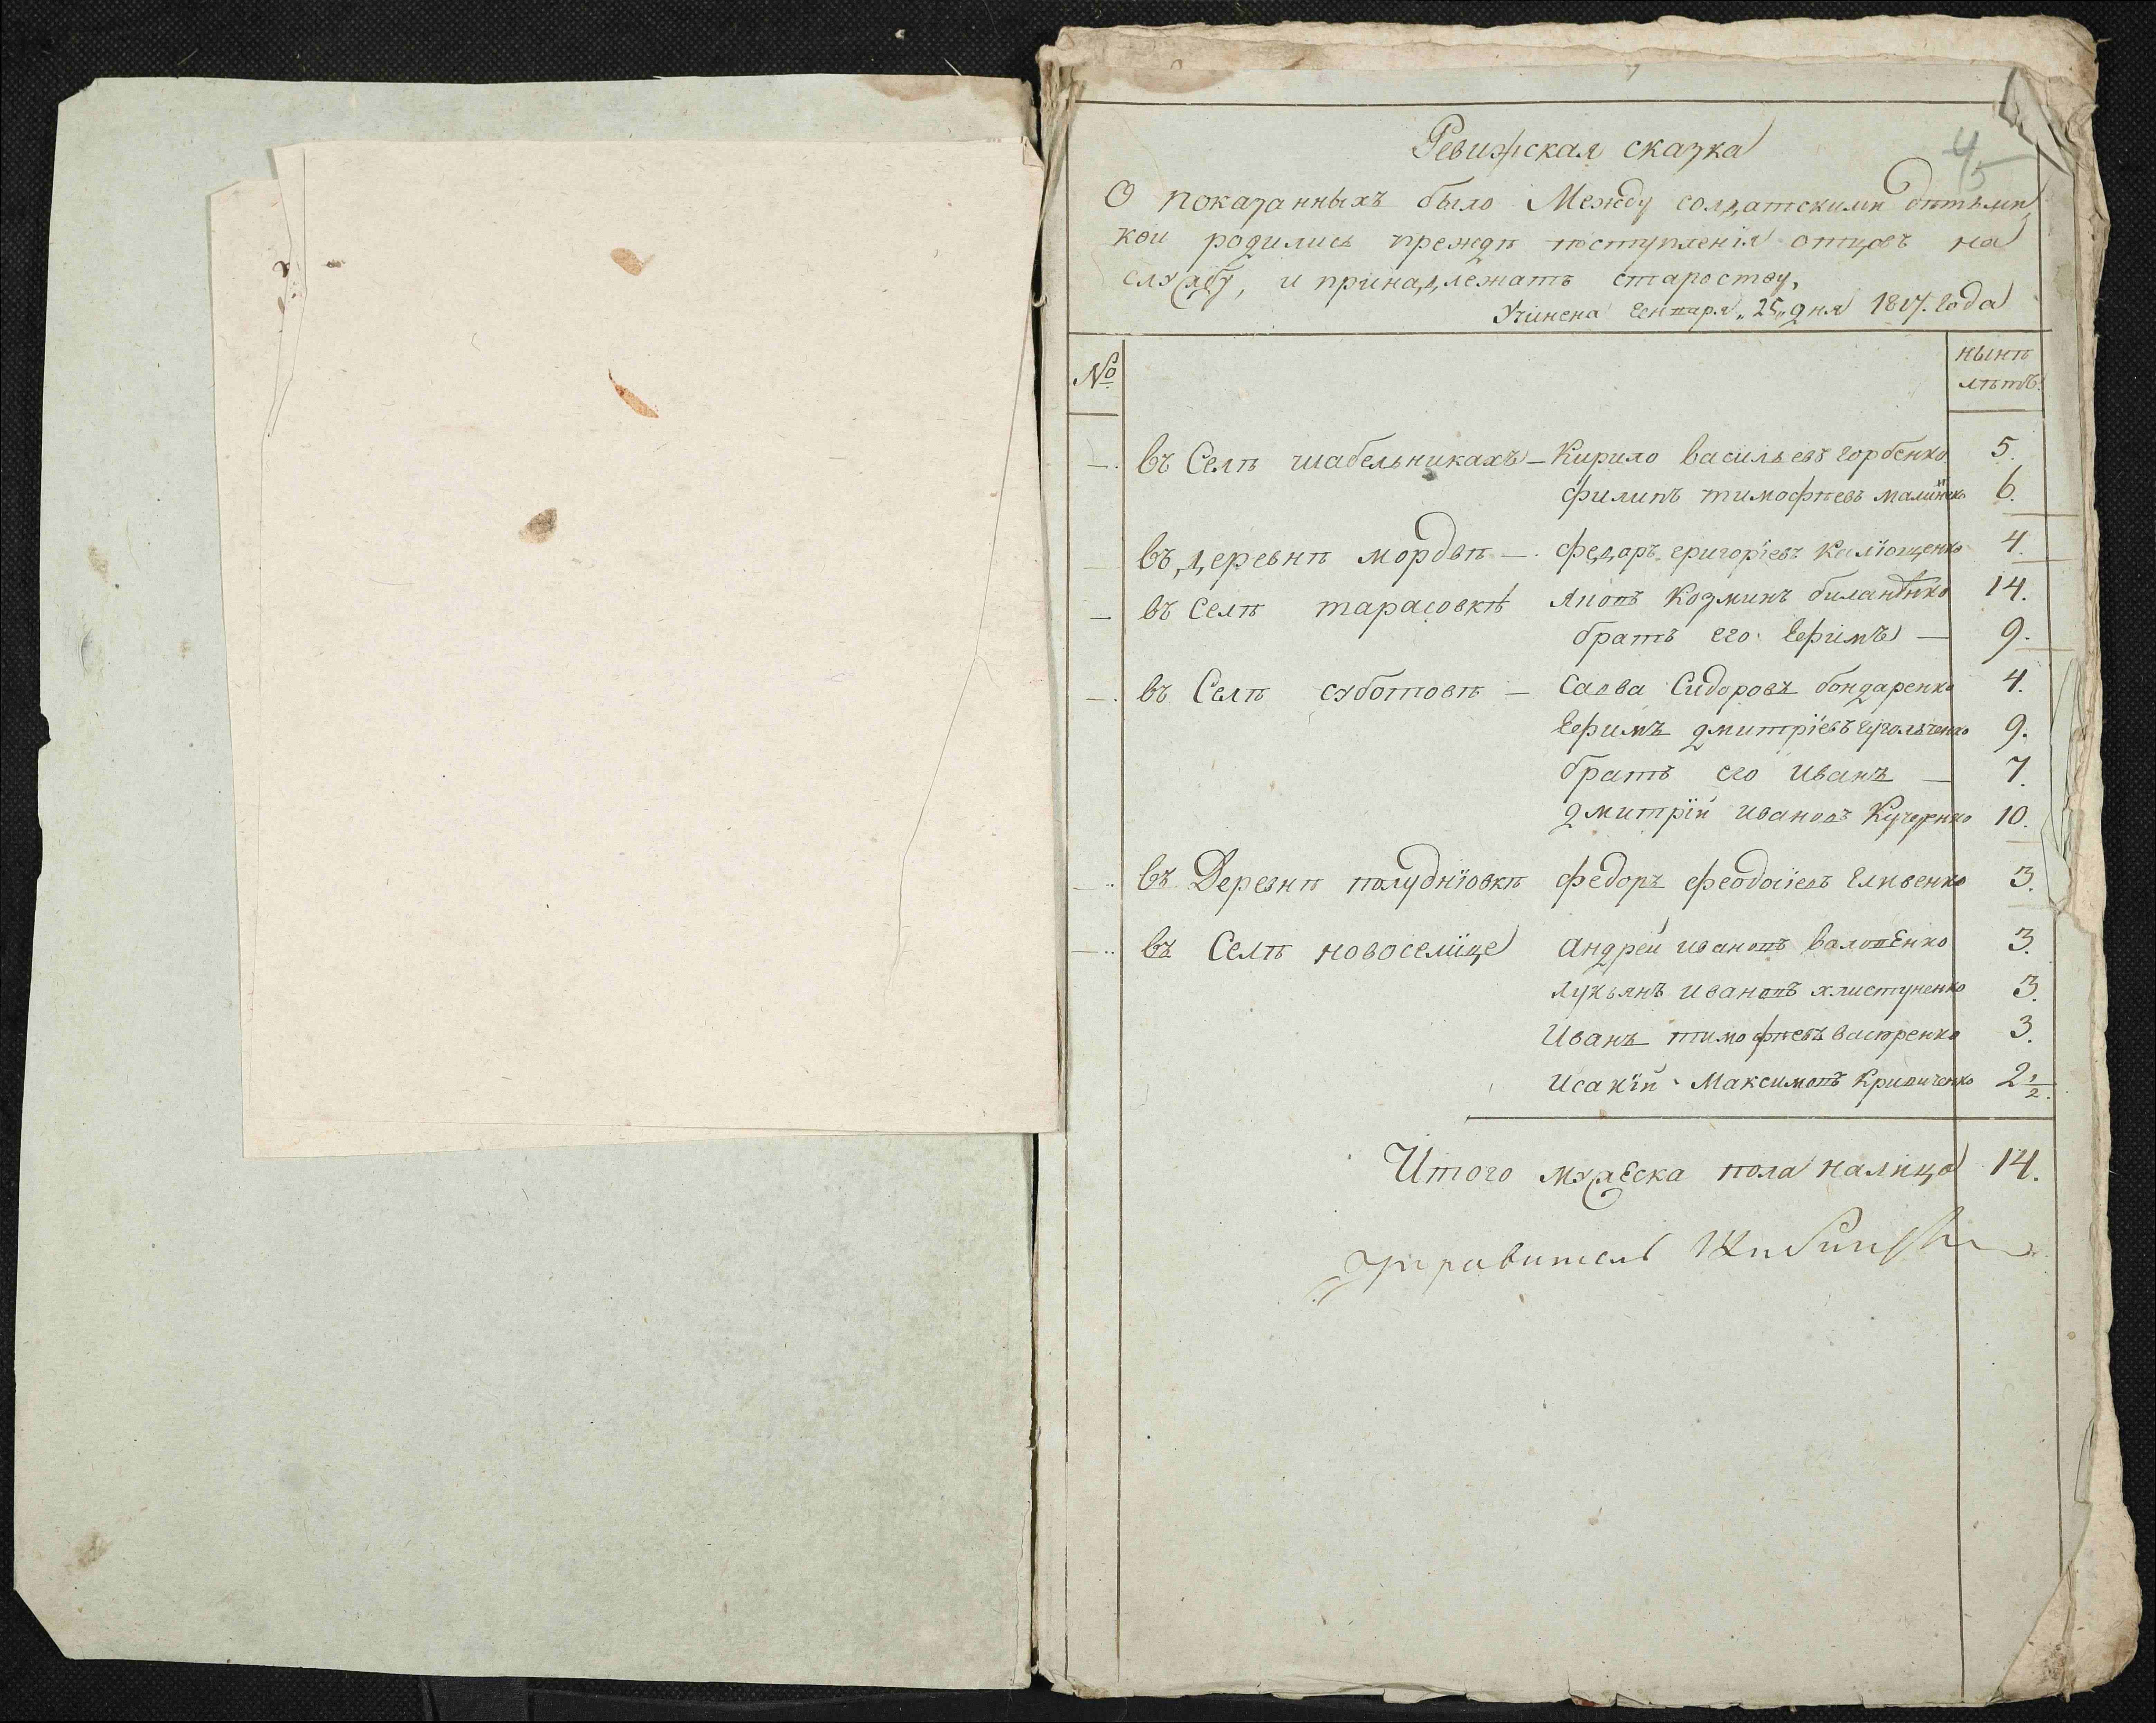 4
5
Ревижская сказка
О показанныхъ было Между солдатскими дѣтьми
кои родились прежде поступленія отцовъ на
службу, и принадлежатъ староству,
Учинена Генваря „25„ дня 1817. Года
№
нынѣ
лѣтъ.
въ Селѣ шабельникахъ — Кирило васильевъ горбенко 5.
филипъ тимофѣевъ 6.
въ деревнѣ мордвѣ — федаръ григоріевъ 4.
въ Селѣ тарасовкѣ Яковъ Козминъ 14.
братъ его Ефимъ — 9.
въ Селѣ суботовѣ — Савва Сидоровъ бондаренко 4.
Ефимъ дмитріевъ 9.
братъ его Иванъ — 7.
дмитрій ивановъ Кучеренко 10.
въ Деревнѣ полуднїовкѣ федоръ феодосіевъ 3.
въ Селѣ новоселище андрей ивановъ 3.
лукьянъ ивановъ хлистуненко 3.
Иванъ тимофѣевъ 3.
Исакій Максимовъ Кривиченко 2½.
Итого мужеска пола налицо 14.
управитель